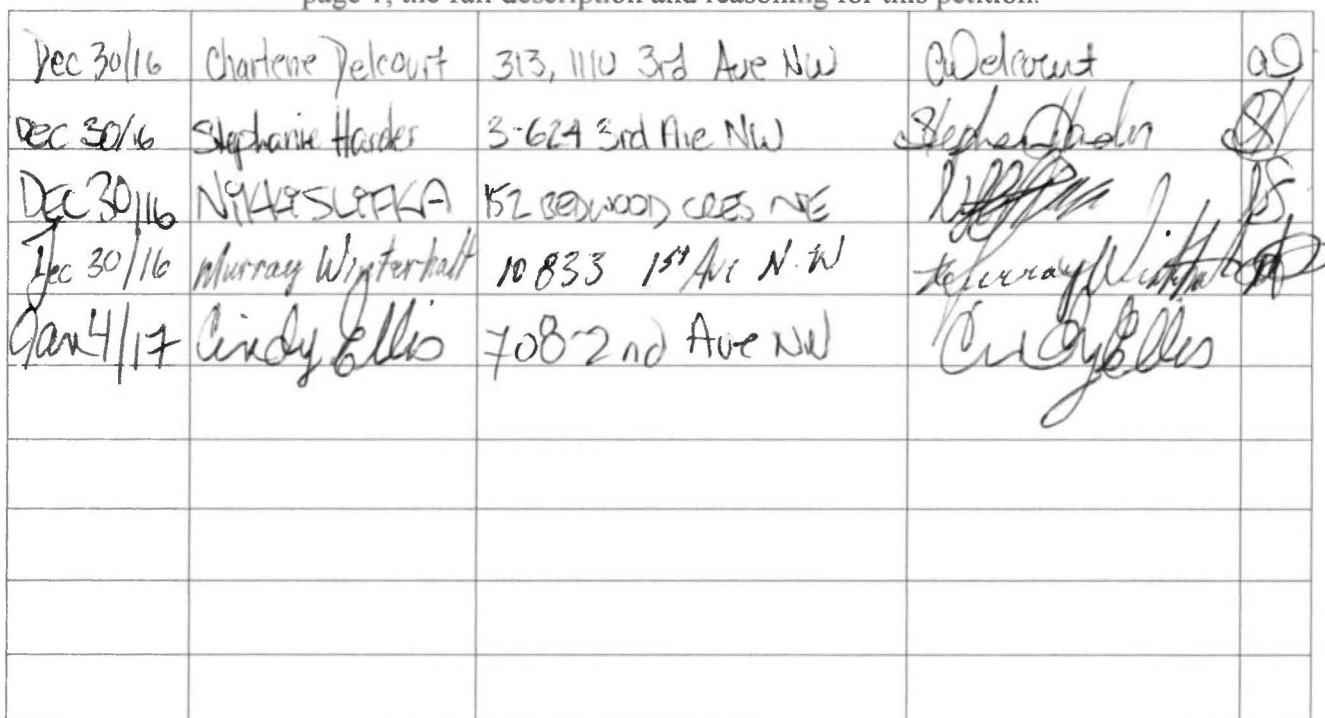 page 1, the full description and reasoning for this petition.
Dec 30/16 Charlene Delcourt 313, 1110 3rd Ave NW CDelcourt CD
Dec 30/16 Stephanie Harder 3-624 3rd Ave NW Stephanie Harder SH
DEC 30/16 NiKKi SLifKA 152 REDWOOD CRES NE NS
Dec 30/16 Murray Winterhalt 10 833 1st Ave N.W Murray Winterhalt
Jan 4/17 Cindy Ellis 708-2nd Ave NW Cindy Ellis